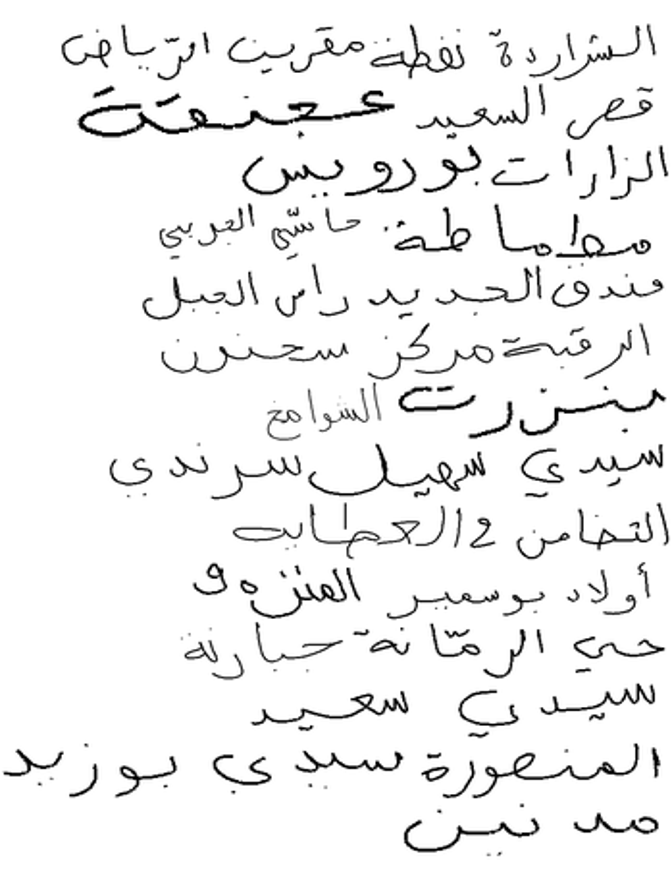 الشراردة نفطة مقرين الرياض
قصر السعيد
الزارات بورويس
مطماطة حاسّي الجربي
فندق الجديد راس الجبل
الرقبة مركز سحنون
بنزرت الشوامخ
سيدي سهيل سرندي
التضامن 2 العطايا
أولاد بوسمير المنزه 9
حي الرمّانة جبارنة
سيدي سعيد
المنصورة سيدي بوزيد
مدنين